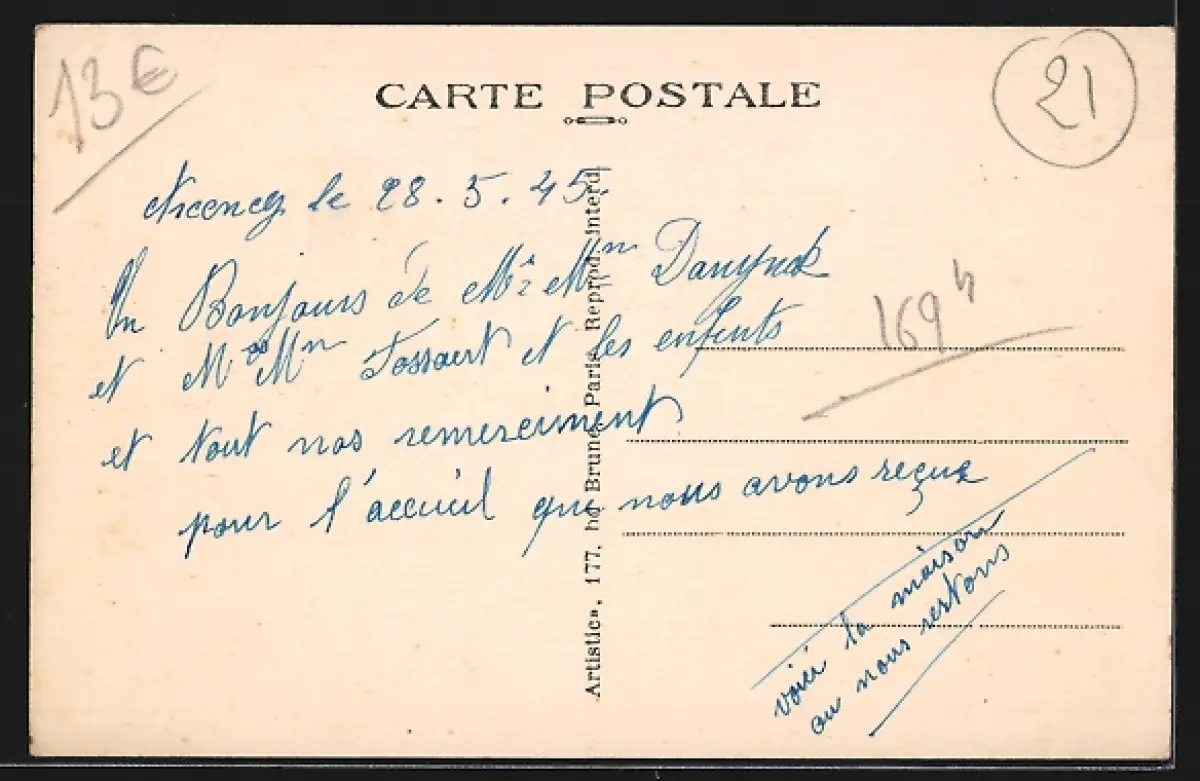 13€
21
CARTE POSTALE
le 28.5.45.
Un Bonjours de Mr Mmn
et Mr Mmn Fossaert et les enfents
et tout nos remerciment
pour l'accueil que nous avons reçue
169
voici la maison
ou nous restons
Artistic», 177, bd Brune, Paris Reprod. interd.